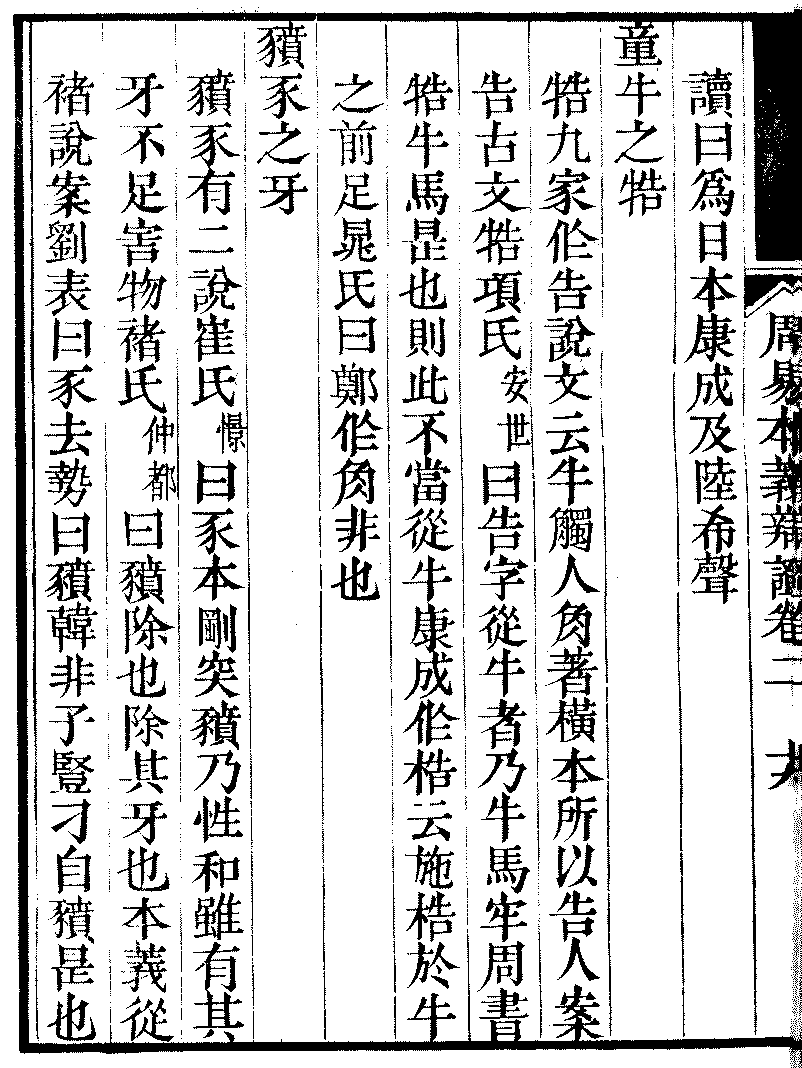 周易本義辯證卷二
讀曰爲日本康成及陸希聲
童牛之牿
牿九家作告說文云牛觸人角著橫木所以告人案
告古文牿項氏安世曰告字從牛者乃牛馬牢周書
牿牛馬是也則此不當從牛康成作梏云施梏於牛
之前足晁氏曰鄭作角非也
豶豕之牙
豶豕有二說崔氏憬曰豕本剛突豶乃性和雖有其
牙不足害物褚氏仲都曰豶除也除其牙也本義從
褚說案劉表曰豕去勢曰豶韓非子豎刁自豶是也